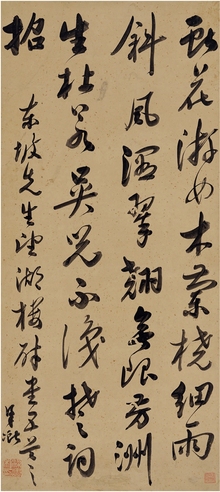 献花游女木蘭橈細雨
斜風濕翠翹無限芳洲
生杜若吳兒不識楚詞
招
東坡先生望湖樓醉書